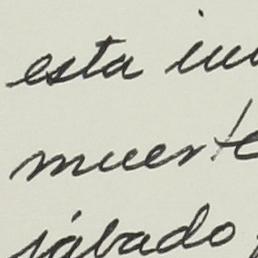 esta
muerte
sábado